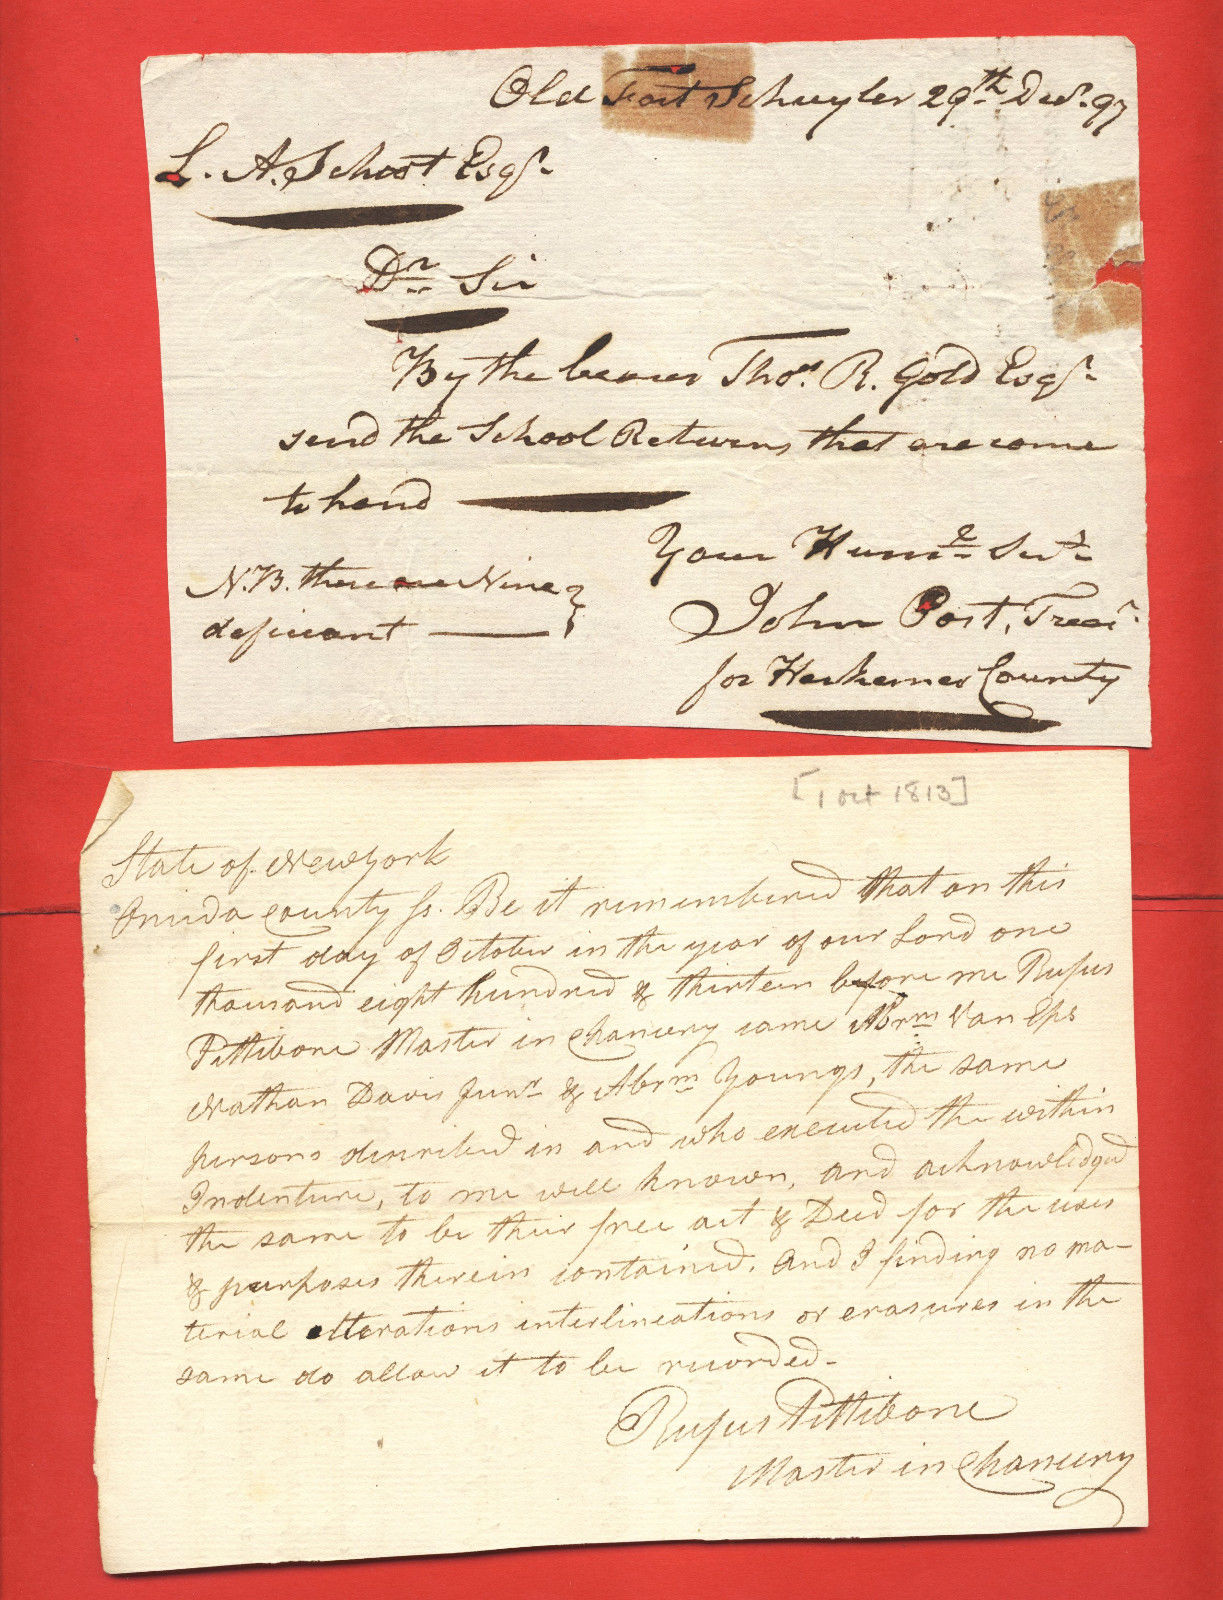 Old Fort Schuyler 29th Decr. 97
L. A. Schost Esqr.
Dr. Sir
By the bearer Thos. R. Gold Esqr.
send the School Returns that are come
to hand
Your Hume. Sert.
N.B. there are Nine
deficient
John Post, Treasr.
for Herkemer County
[1 Oct 1813]
State of New York
Oneida County ss. Be it remembered that on this
first day of October in the year of our Lord one
thousand eight hundred & thirteen before me Rufus
Pettibone Master in Chancery came Abrm Van Eps
Nathan Davis Junr & Abrm Youngs, the same
persons described in and who executed the within
Indenture, to me well known, and acknowledged
the same to be their free act & Deed for the uses
& purposes therein contained. And I finding no ma-
terial alterations interlineations or erasures in the
same do allow it to be recorded-
Rufus Pettibone
Master in Chancery